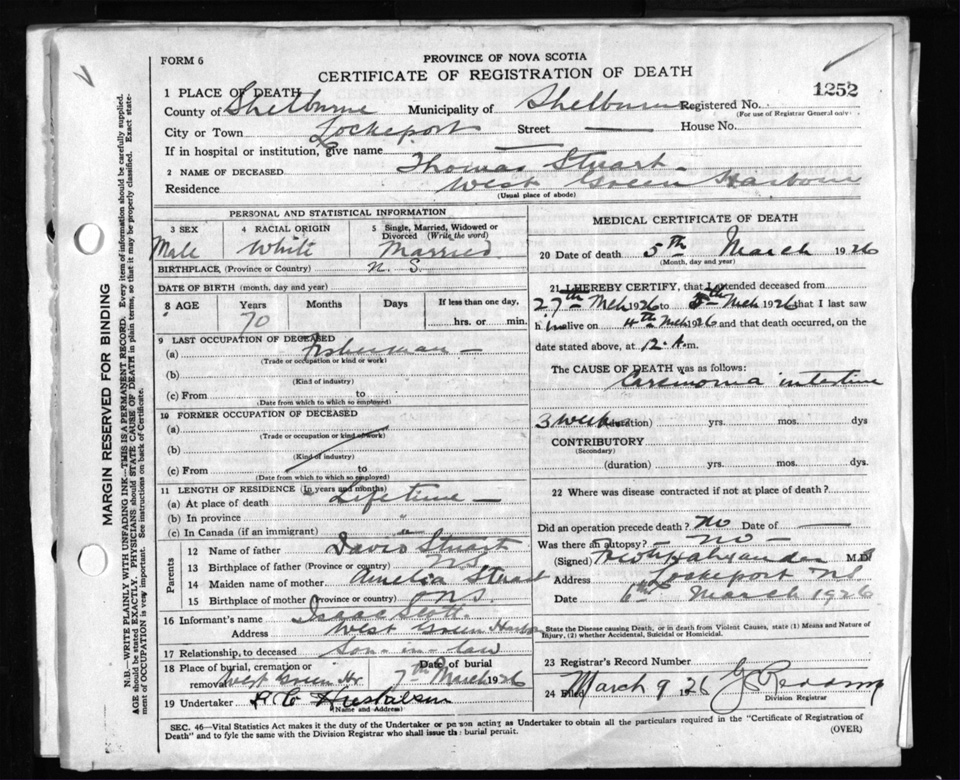 FORM 6
PROVINCE OF NOVA SCOTIA
CERTIFICATE OF REGISTRATION OF DEATH
1252
1 PLACE OF DEATH
County of Shelburne Municipality of Shelburne Registered No.
(For use of Registrar General only)
City or Town Lockeport Street — House No.
If in hospital or institution, give name —
2 NAME OF DECEASED Thomas Stuart
Residence West Green Harbour
(Usual place of abode)
PERSONAL AND STATISTICAL INFORMATION
3 SEX 4 RACIAL ORIGIN 5 Single, Married, Widowed or Divorced (Write the word)
Male White Married
BIRTHPLACE, (Province or Country) N. S.
DATE OF BIRTH (month, day and year)
8 AGE Years Months Days If less than one day,
70 hrs. or min.
9 LAST OCCUPATION OF DECEASED
(a) Fisherman —
(Trade or occupation or kind or work)
(b)
(Kind of industry)
(c) From to
(Date from which to which so employed)
10 FORMER OCCUPATION OF DECEASED
(a)
(Trade or occupation or kind or work)
(b)
(Kind of industry)
(c) From to
(Date from which to which so employed)
11 LENGTH OF RESIDENCE (In years and months)
(a) At place of death Lifetime —
(b) In province "
(c) In Canada (if an immigrant) "
Parents
12 Name of father David Stuart
13 Birthplace of father (Province or country) N.S.
14 Maiden name of mother Amelia Stuart
15 Birthplace of mother (Province or country) N.S.
16 Informant's name Isaac Scott
Address West Green Harbor
17 Relationship, to deceased son-in-law
18 Place of burial, cremation or removal West Green Hr Date of burial 7th March 1926
19 Undertaker
(Name and Address)
MEDICAL CERTIFICATE OF DEATH
20 Date of death 5th March 1926
(Month, day and year)
21 I HEREBY CERTIFY, that I attended deceased from
27th Mch 1926 to 5th Mch 1926 that I last saw
him alive on 4th Mch 1926 and that death occurred, on the
date stated above, at 12. A.m.
The CAUSE OF DEATH was as follows:
Carsinoma intestine
3 weeks (duration) yrs. mos. dys
CONTRIBUTORY
(Secondary)
(duration) yrs. mos. dys.
22 Where was disease contracted if not at place of death?
Did an operation precede death? No Date of —
Was there an autopsy? — No —
(Signed) M.D.
Address Lockeport NS
Date 6th March 1926
State the Disease causing Death, or in death from Violent Causes, state (1) Means and Nature of Injury, (2) whether Accidental, Suicidal or Homicidal.
23 Registrar's Record Number
24 Filed March 9 1926
Division Registrar
SEC. 46—Vital Statistics Act makes it the duty of the Undertaker or person acting as Undertaker to obtain all the particulars required in the "Certificate of Registration of
Death" and to fyle the same with the Division Registrar who shall issue the burial permit. (OVER)
MARGIN RESERVED FOR BINDING
N.B.—WRITE PLAINLY WITH UNFADING INK—THIS IS A PERMANENT RECORD. Every item of information should be carefully supplied.
AGE should be stated EXACTLY. PHYSICIANS should STATE CAUSE OF DEATH in plain terms, so that it may be properly classified. Exact state-
ment of OCCUPATION is very important. See instructions on back of Certificate.